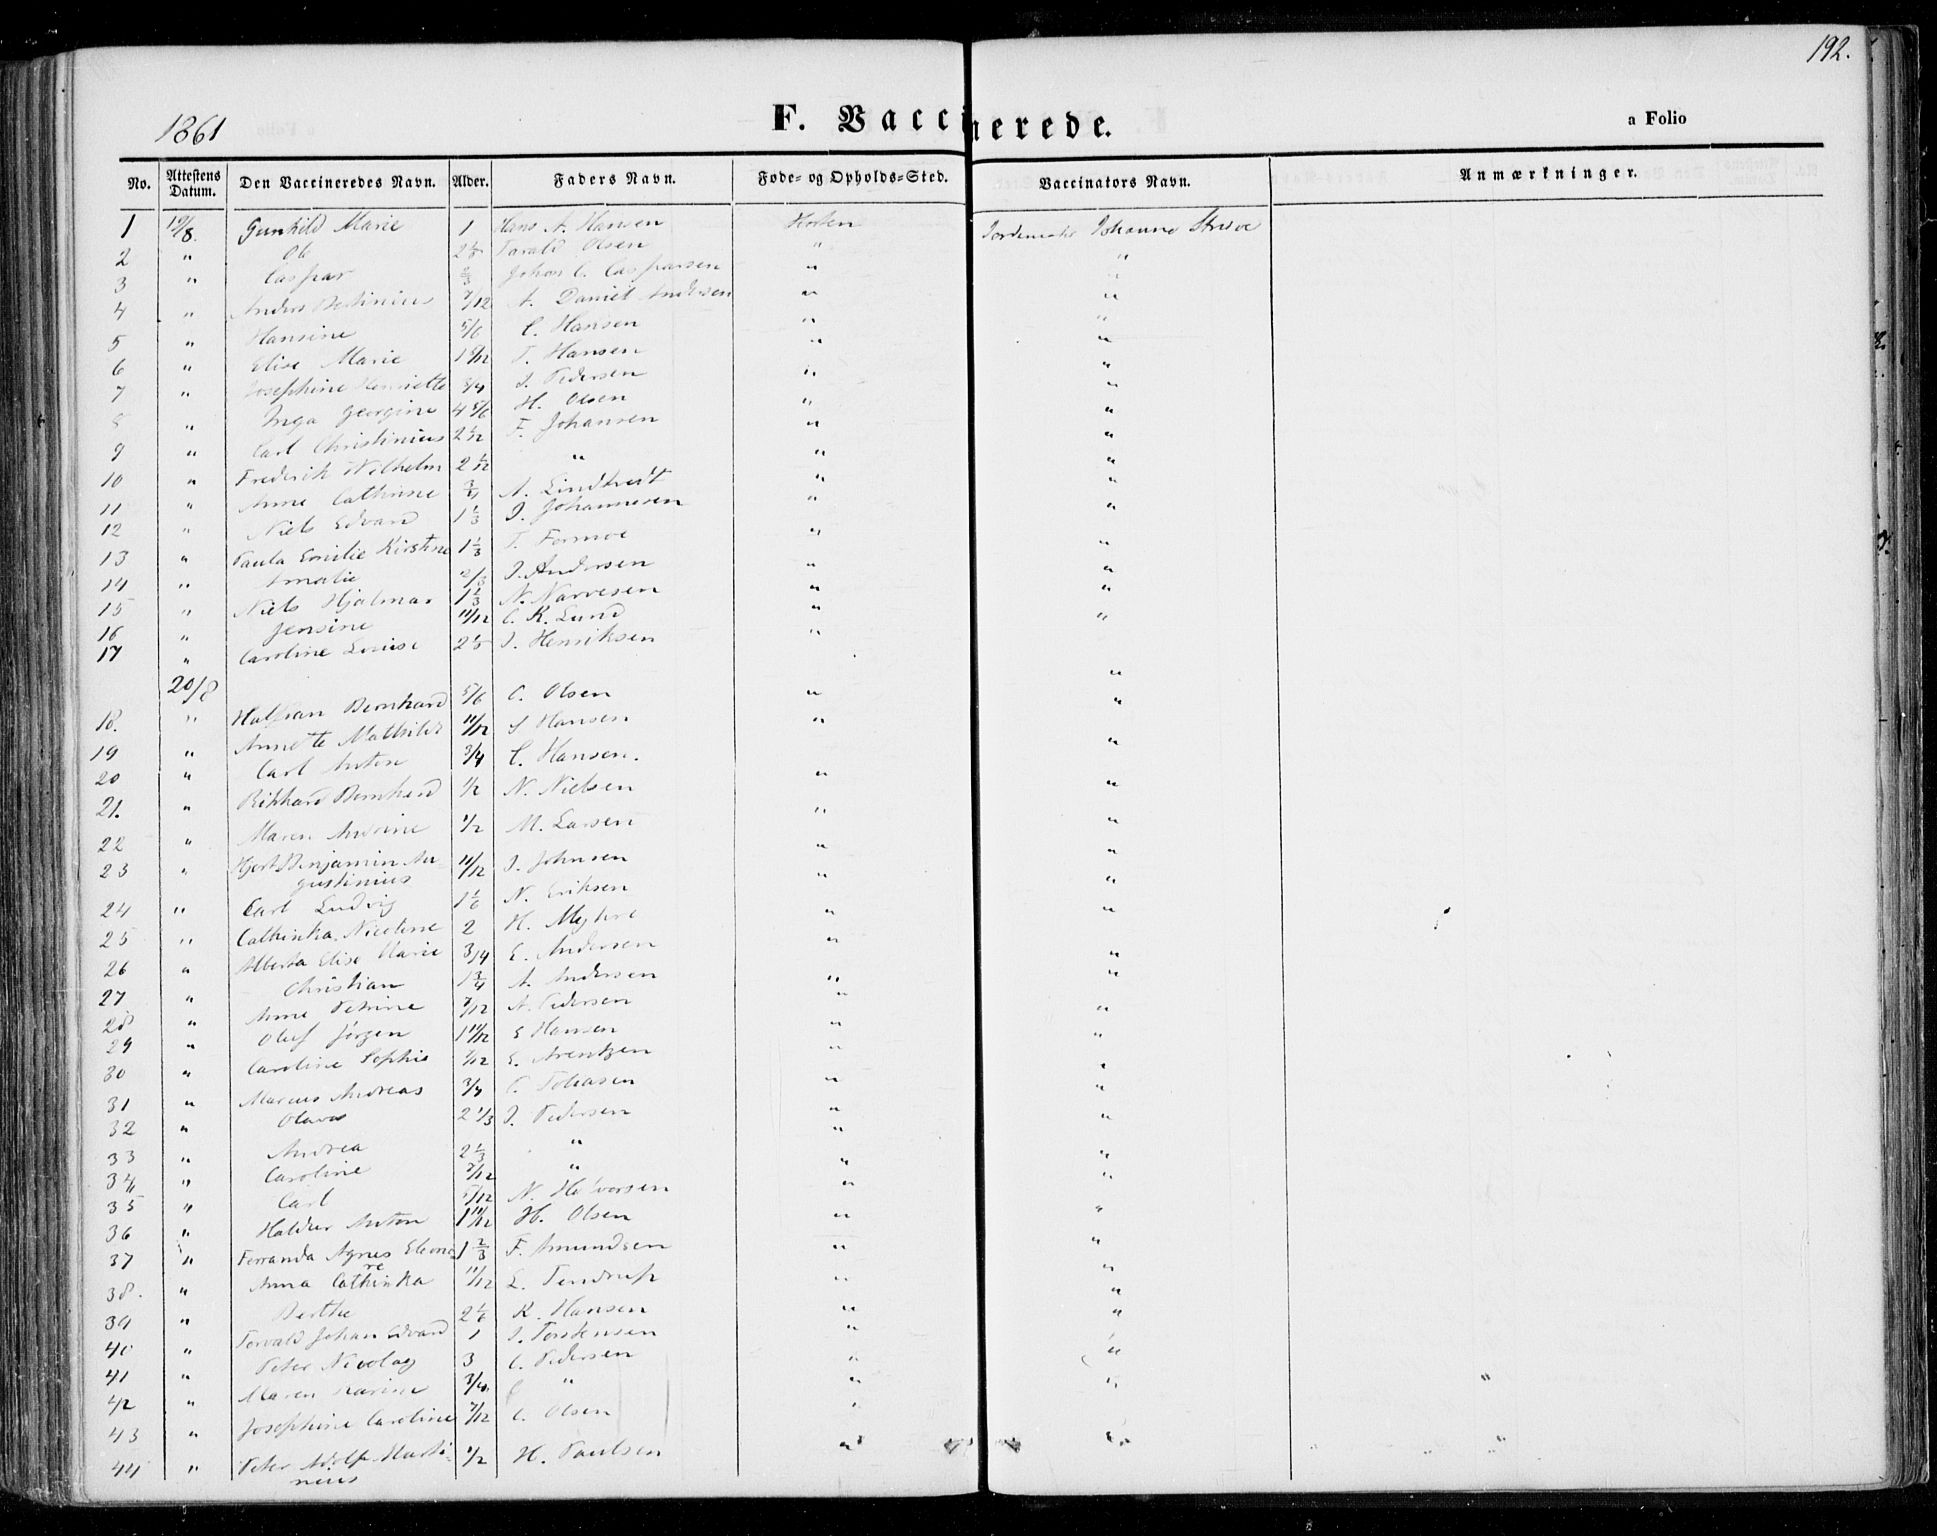 192.
1861
F. Vaccinerede.
a Folio
No. Attestens Datum. Den Vaccineredes Navn. Alder. Faders Navn. Føde- og Opholds-Sted. Vaccinators Navn. Anmærkninger.
1 19/8. Gunhild Marie 1 Hans A. Hansen Horten Johanne
2 " Ole Tarald Olsen " "
3 " Caspar 2/3 Johan C. Caspersen " "
4 " Anders 7/12 A. Daniel Andersen " "
5 " Hansine 5/6 C. Hansen " "
6 " Elise Marie T. Hansen " "
7 " Josephine Henriette 3/4 J. Pedersen " "
8 " Inga Georgine 4 5/6 H. Olsen " "
9 " Carl Christinius 2 1/12 F. Johansen " "
10 " Frederik Wilhelm 2 1/12 " " "
11 " Anne Cathrine 3/4 A. Lindtvedt " "
12 " Niels Edvard 1 1/3 J. Johannesen " "
13 " Paula Emilie Kirstine 1 1/3 T. Formoe " "
14 " Amalie 2/3 J. Andersen " "
15 " Niels Hjalmar 1 1/3 N. Narvesen " "
16 " Jensine 11/12 C. K. Lund " "
17 " Caroline Louise J. Henriksen "
20/8
18. " Halfdan Bernhard 5/6 O. Olsen " "
19 " Annette Mathilde 11/12 S Hansen " "
20 " Carl Anton 3/4 C. Hansen. "
21. " Rikhard Bernhard 1/2 N. Nielsen " "
22 " Maren Andrine 1/2 M. Larsen " "
23 " Benjamin Au-
gustinius 11/12 J. Johnsen " "
24 " Carl Ludvig 1 1/6 N. Eriksen " "
25 " Cathinka Nicoline 2 H. Myhre " "
26 " Alberta Elise Marie 3/4 E. Andersen " "
27 " Christian 1 3/4 A. Andersen " "
28 " Anne Petrine 7/12 A. Pedersen " "
29 " Oluf Jørgen 1 11/12 E Hansen " "
30 " Caroline Sophie 7/12 E. Arentzen " "
31 " Marcus Andreas 3/4 Tobiasen " "
32 " Olava 2 1/3 J. Pedersen " "
33 " Andrea 2 1/3 " " "
34 " Caroline 7/12 " " "
35 " Carl 5/12 N. Halvorsen " "
36 " Anton 1 11/12 H. Olsen " "
37 " Agnes Eleono-
re 1 2/3 F. Amundsen " "
38. " Anna Cathinka 11/12 L. Tendrup " "
39 " Berthe 2 1/6 K. Hansen " "
40 " Torvald Johan Edvard 1 J. Torstensen " "
41 " Peter Nicolay 3 C. Pedersen " "
42 " Maren Karine 3/4 " " "
43 " Josephine Caroline 7/12 C. Olsen "
44 " Peter Adolf Marti-
nius 1/2 H. Paulsen " "